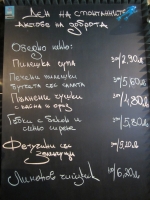 Ден на спонтанните
актове на доброта
Обедно меню:
Пилешка супа 2,90лв
Печени пилешки
бутчета със салата 5,60лв
Пълнени чушки
с кайма и ориз 4,80лв
Гъби с бекон и
синьо сирене 5,80лв
Фетучини със
Лимонов чийзкейк 6,20лв